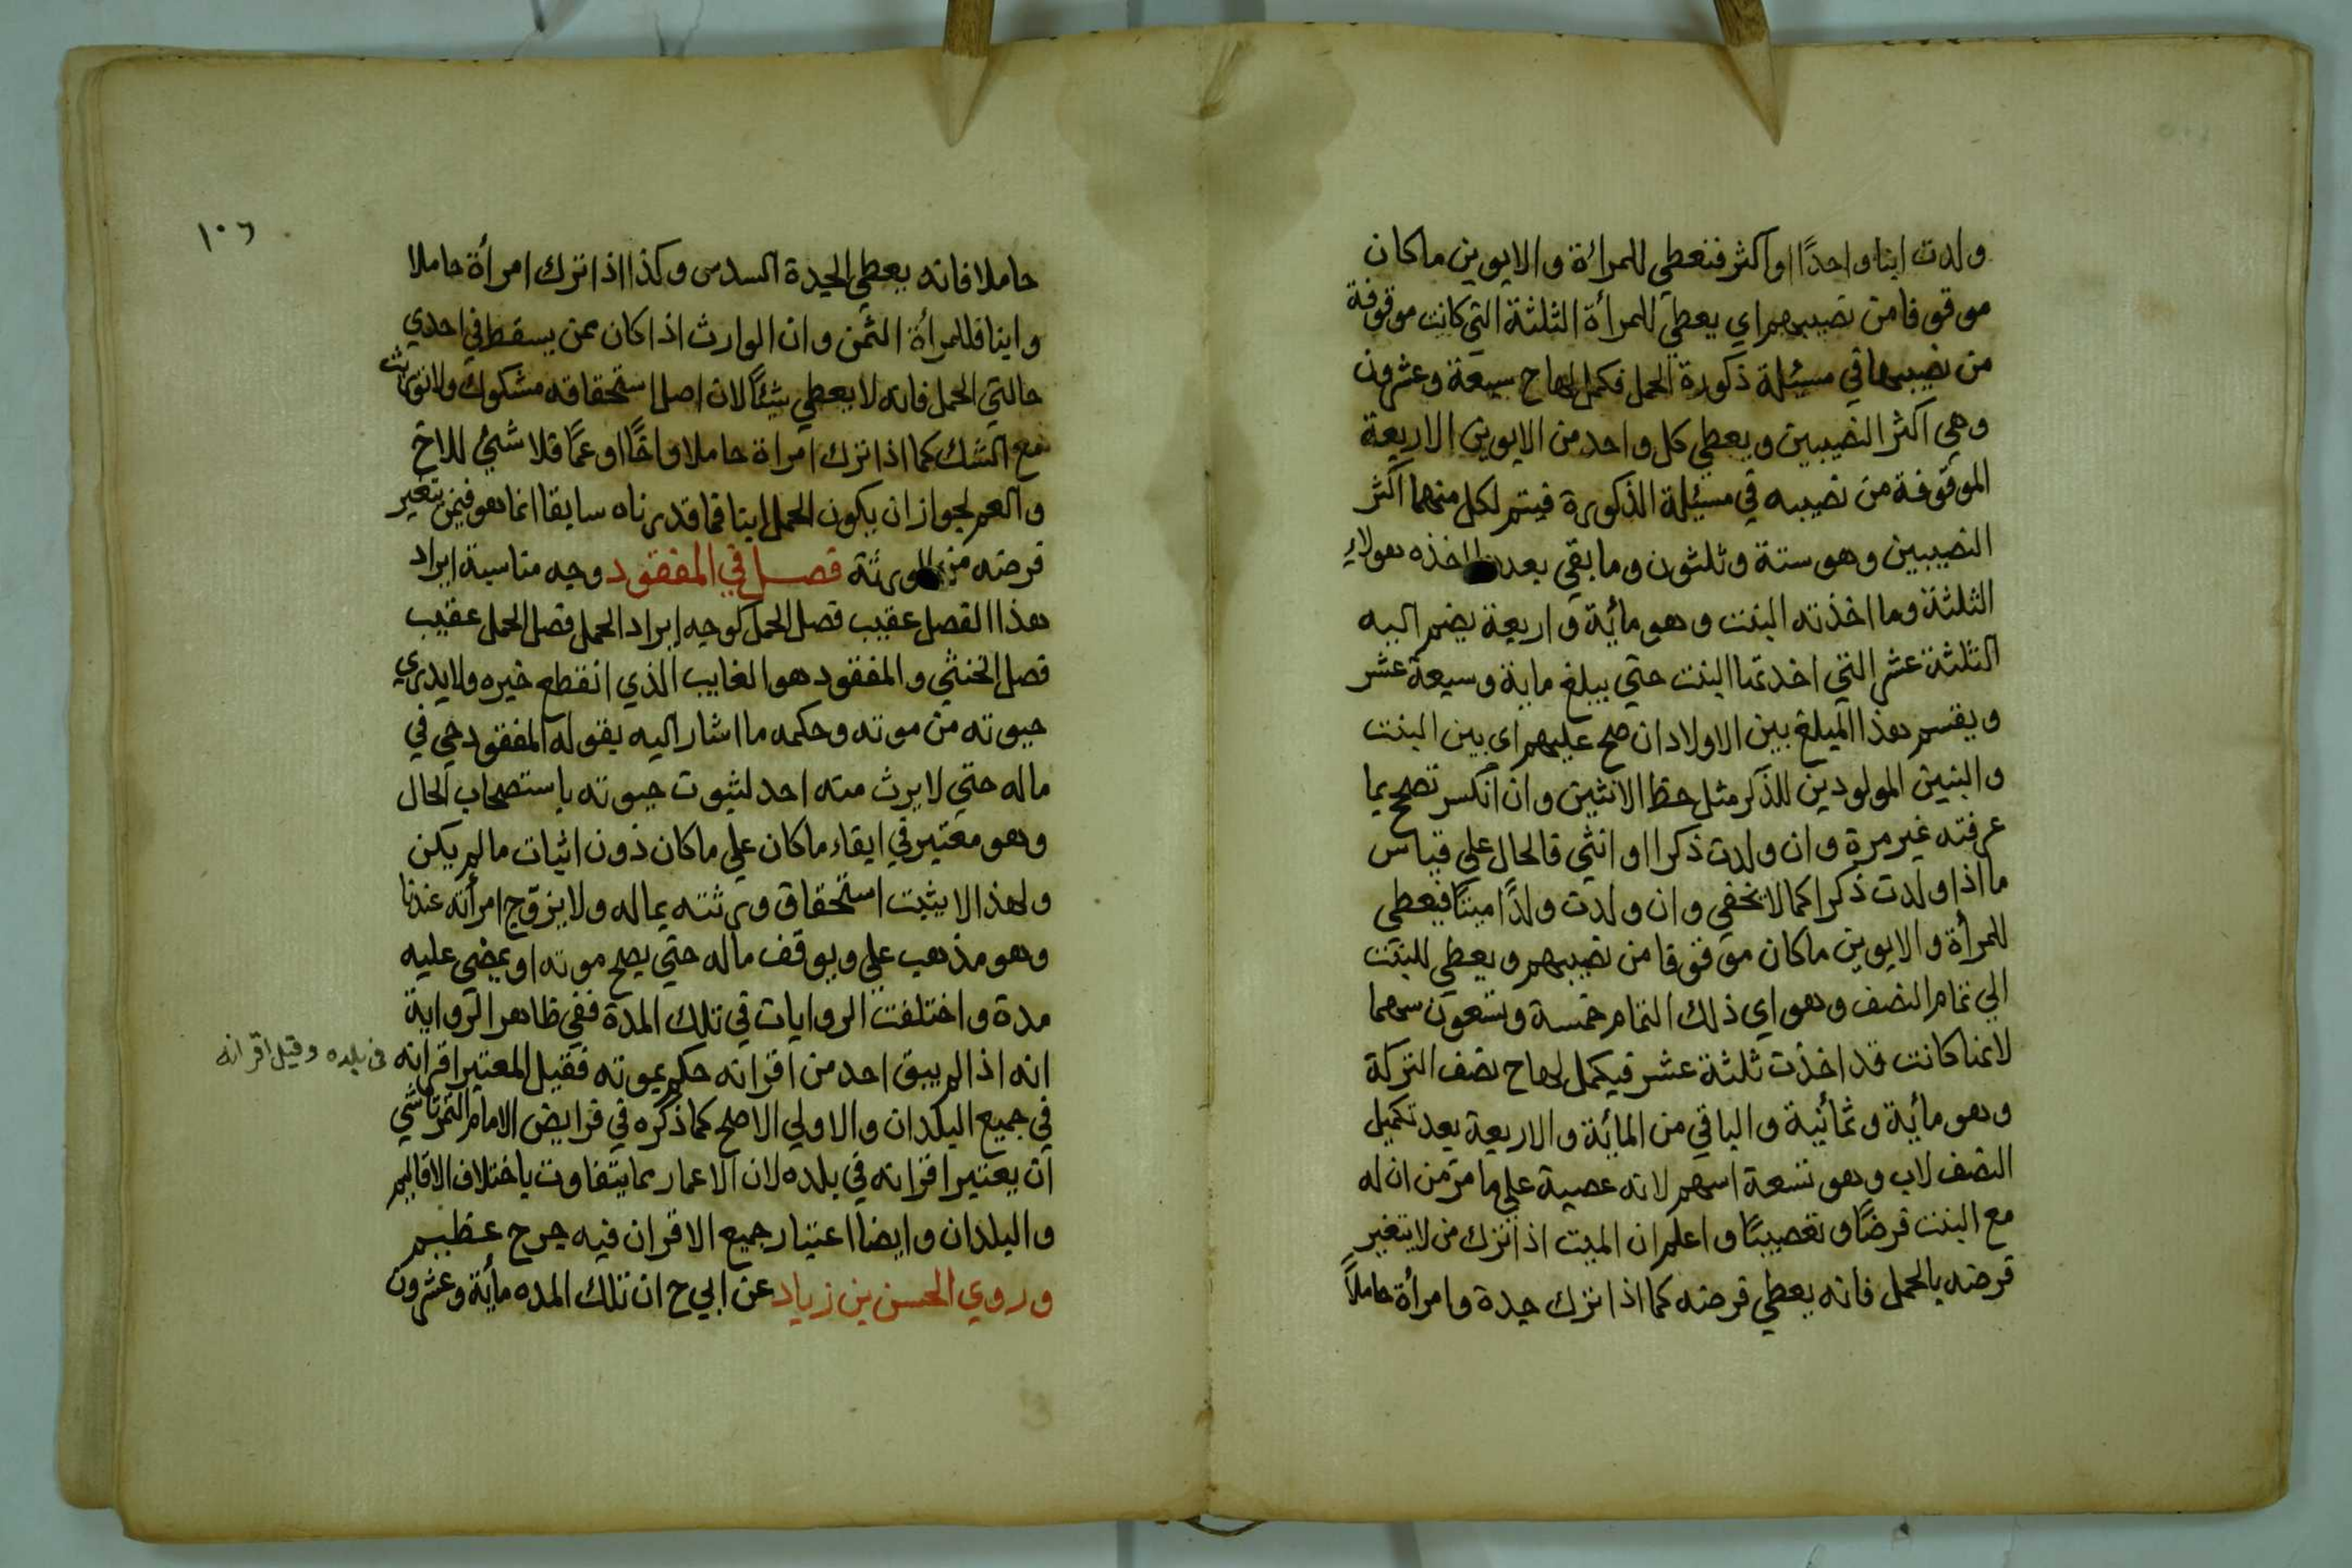 ولدت ابنا واحدًا او اكثر فنعطي للمرأة والابوين ما كان
موقوفا من نصيبهم اي يعطي للمرأة الثلثة التي كانت موقوفة
من نصيبها في مسئلة ذكورة الحمل فكمل لها ح سبعة وعشرون
وهي اكثر النصيبين ويعطي كل واحد من الابوين الاربعة
الموقوفة من نصيبه في مسئلة الذكورة فيتم لكل منهما اكثر
النصيبين وهو ستة وثلثون وما بقي بعد اخذه هولاء
الثلثة وما اخذته البنت وهو مائة واربعة يضم اليه
الثلثة عشر التي اخذتها البنت حتي يبلغ ماية وسبعة عشر
ويقسم هذا المبلغ بين الاولاد ان صح عليهم اي بين البنت
والبنين المولودين للذكر مثل حظ الانثيين وان انكسر تصحح بما
عرفته غير مرة وان ولدت ذكرا او انثي فالحال علي قياس
ما اذا ولدت ذكرا كما لا يخفي وان ولدت ولدًا ميتًا فيعطي
للمرأة والابوين ما كان موقوفا من نصيبهم ويعطي للبنت
الي تمام النصف وهو اي ذلك التمام خمسة وتسعون سهما
لانها كانت قد اخذت ثلثة عشر فيكمل لها ح نصف التركة
وهو مأية وثمأنية والباقي من المائة والاربعة بعد تكميل
النصف لاب وهو تسعة اسهم لانه عصبة علي ما مرّ من ان له
مع البنت فرضًا وتعصيبًا واعلم ان الميت اذا ترك من لا يتغير
فرضه بالحمل فانه يعطي فرضه كما اذا ترك جدة وامرأة حاملاً
١٠٦
حاملا فانه يعطي الجدة السدس وكذا اذا ترك امرأة حاملا
وابنا فللمرأة الثمن وان الوارث اذا كان ممن يسقط في احدي
حالتي الحمل فانه لا يعطي شيئًا لان اصل استحقاقه مشكوك ولا توريث
مع الشك كما اذا ترك امرأة حاملا واخًا او عمًا فلا شئ للاخ
والعم لجواز ان يكون الحمل ابنا فما قدرناه سابقا انما هو فيمن يتغير
فرضه من الورثة فصل في المفقود وجه مناسبة ايراد
هذا الفصل عقيب فصل الحمل كوجه ايراد الحمل فصل الحمل عقيب
فصل الخنثي والمفقود هو الغايب الذي انقطع خبره ولا يدري
حيوته من موته وحكمه ما اشار اليه بقوله المفقود حي في
ماله حتي لا يرث منه احد لثبوت حيوته باستصحاب الحال
وهو معتبر في ابقاء ما كان علي ما كان دون اثبات ما لم يكن
ولهذا لا يثبت استحقاق ورثته بماله ولا يزوّج امرأته عندنا
وهو مذهب علي ويوقف ماله حتي يصح موته او يمضي عليه
مدة واختلفت الروايات في تلك المدة ففي ظاهر الرواية
انه اذا لم يبق احد من اقرانه حكم بموته فقيل المعتبر اقرانه في بلده وقيل اقرانه
في جميع البلدان والاولي الاصح كما ذكره في فرايض الامام التمرتاشي
ان يعتبر اقرانه في بلده لان الاعمار مما يتفاوت باختلاف الاقاليم
والبلدان وايضا اعتبار جميع الاقران فيه حرج عظيم
وروي الحسن بن زياد عن ابي ح ان تلك المده مأية وعشرون